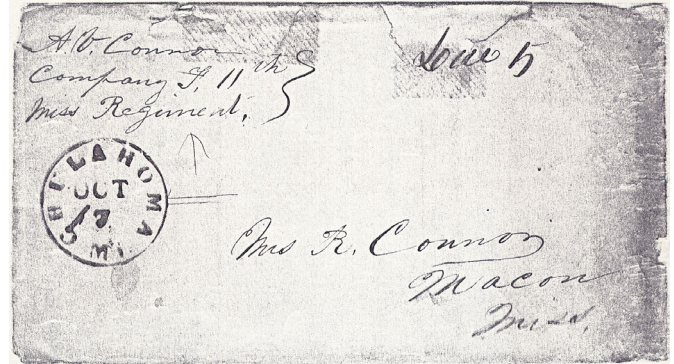 A. V. Connor
Company F, 11th
Miss Regiment,
Due 5
CHULAHOMA MI.
OCT
17
Mrs R. Connor
Macon
Miss.